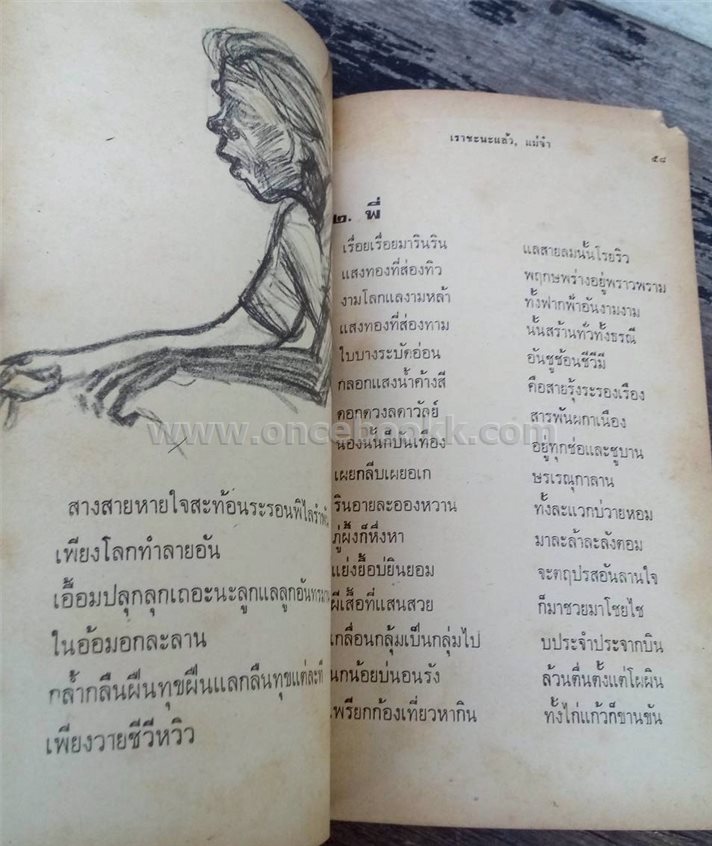 สางสายหายใจสะท้อนระรอนพิไลรำ
เพียงโลกทำลายอัน
เอื้อมปลุกลุกเถอะนะลูกแลลูกอันทร
ในอ้อมอกละลาน
กล้ำกลืนฝืนทุขฝืนแลกลืนทุขแต่ละที
เพียงวายชีวีหวิว
เราชะนะแล้ว, แม่จ๋า
๕๘
๒. พี่
เรื่อยเรื่อยมารินริน แลสายลมนั้นโรยริว
แสงทองที่ส่องทิว พฤกษพร่างอยู่พราวพราม
งามโลกแลงามหล้า ทั้งฟากฟ้าอันงามงาม
แสงทองที่ส่องทาม นั้นสร้านทั่วทั้งธรณี
ใบบางระบัดอ่อน อันชูช้อนชีวีมี
กลอกแสงน้ำค้างสี คือสายรุ้งระรองเรือง
ดอกดวงลดาวัลย์ สารพันผกาเนือง
นองนั้นก็บันเทือง อยู่ทุกช่อและชูบาน
เผยกลีบเผยอเก ษรเรณุกาลาน
รินอายละอองหวาน ทั้งละแวกบ่วายหอม
ภู่ผึ้งก็หึ่งหา มาละล้าละลังตอม
แย่งยื้อบ่ยินยอม จะตฤปรสอันลานใจ
ผีเสื้อที่แสนสวย ก็มาชวยมาโชยไช
เกลื่อนกลุ้มเป็นกลุ่มไป บประจำประจากบิน
นกน้อยบ่นอนรัง ล้วนตื่นตั้งแต่โผผิน
เพรียกก้องเที่ยวหากิน ทั้งไก่แก้วก็ขานขัน
www.oncebookk.com